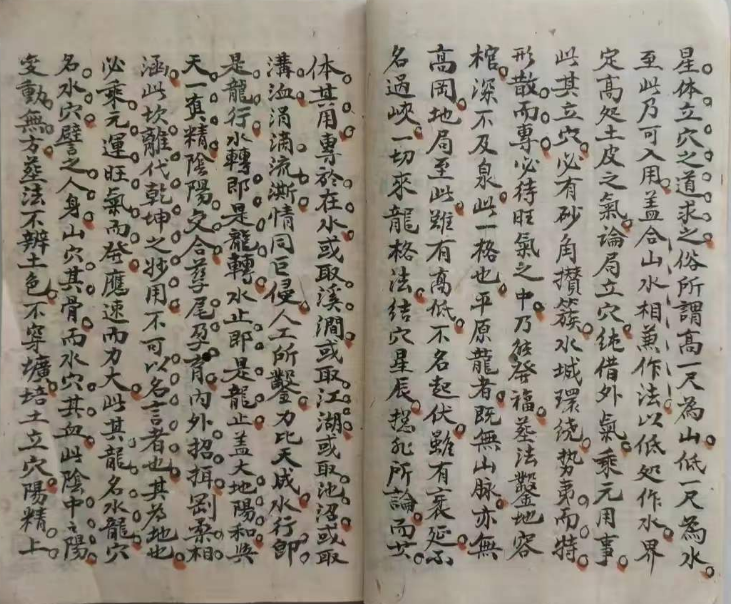 星体立穴之道求之俗所謂高一尺為山低一尺為水
至此乃可入用盖合山水相兼作法以低処作水界
定高処土皮之氣論局立穴純借外氣乘元用事
此其立穴必有砂角攅簇水城環绕势専而特
形散而專必待旺氣之中乃能發福葬法鑿地容
棺深不及泉此一格也平原龍者既無山脉亦無
高岡地局至此雖有高低不名起伏雖有衰延不
名過峽一切來龍格法結穴星辰揔非所論而其
体其用專於在水或取溪澗或取江湖或取池沼或取
溝洫涓滴流澌情同巨侵人工所鑿力比天成水行即
是龍行水轉即是龍轉水止即是龍止盖大地陽和與
天一真精陰陽交合孳尾孕育内外招揖剛柔相
涵此坎離代乾坤之妙用不可以名言者也其為地也
必乘元運旺氣而發應速而力大此其龍名水龍穴
名水穴譬之人身山穴其骨而水穴其血此陰中之陽
变動無方葬法不辨土色不穿壙培土立穴陽精上